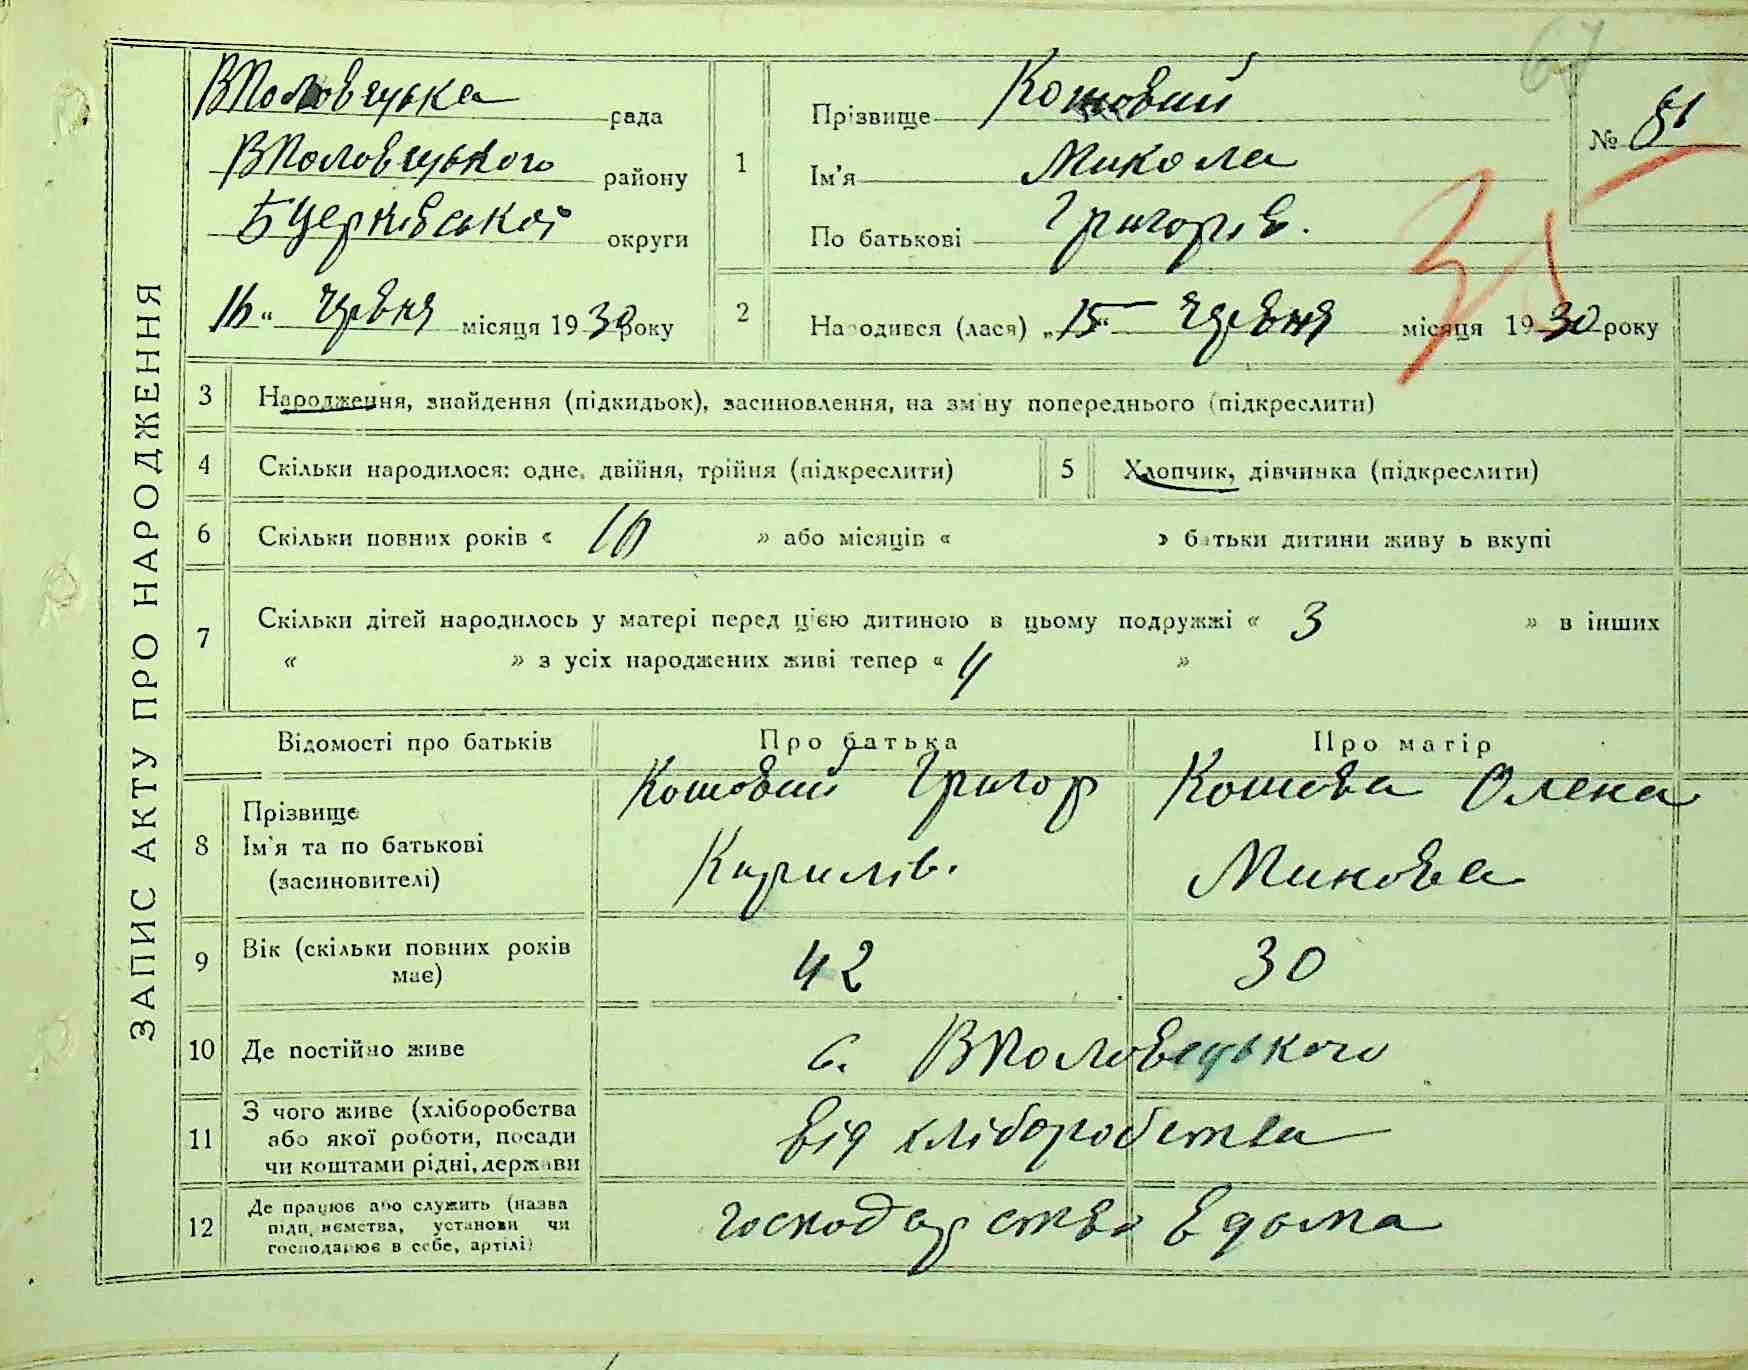 ЗАПИС АКТУ ПРО НАРОДЖЕННЯ
67
ВПоловецька рада
ВПоловецького району
БЦерківської округи
16 „ червня місяця 1930 року
1
Прізвище Кошовий
Ім'я Микола
По батькові Григорів.
№ 81
35
2 Народився (лася) „15“ червня місяця 1930 року
3 Народження, знайдення (підкидьок), засиновлення, на зміну попереднього (підкреслити)
4 Скільки народилося: одне, двійня, трійня (підкреслити)
5 Хлопчик, дівчинка (підкреслити)
6 Скільки повних років « 10 » або місяців « » батьки дитини живуть вкупі
7 Скільки дітей народилось у матері перед цією дитиною в цьому подружжі « 3 » в інших
« » з усіх народжених живі тепер « 4 »
Відомості про батьків
Про батька
Про матір
8 Прізвище
Ім'я та по батькові
(засиновителі)
Кошовий Григор
Кирилів.
Кошова Олена
Минова
9 Вік (скільки повних років
має)
42
30
10 Де постійно живе
с. ВПоловецького
11 З чого живе (хліборобства
або якої роботи, посади
чи коштами рідні, держави
від хліборобства
12 Де працює або служить (назва
підприємства, установи чи
господарює в себе, артілі)
господарство вдома